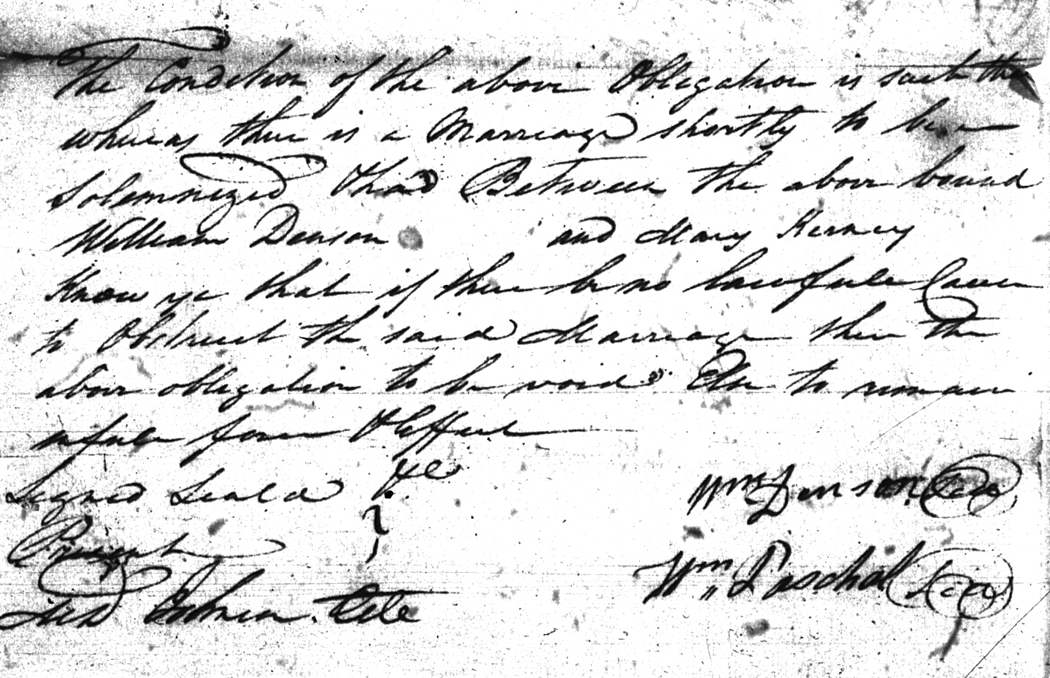 The Condition of the above Obligation is such that
whereas there is a Marriage shortly to be
Solemnized & had Between the above bound
William Denson and Mary Kerney
Know ye that if there be no lawfull Cause
to Obstruct the said Marriage then the
above obligation to be void Else to remain
in full force & Effect
Signed Seald &c
Wm Denson Seal
Present
Wm Paschal Seal